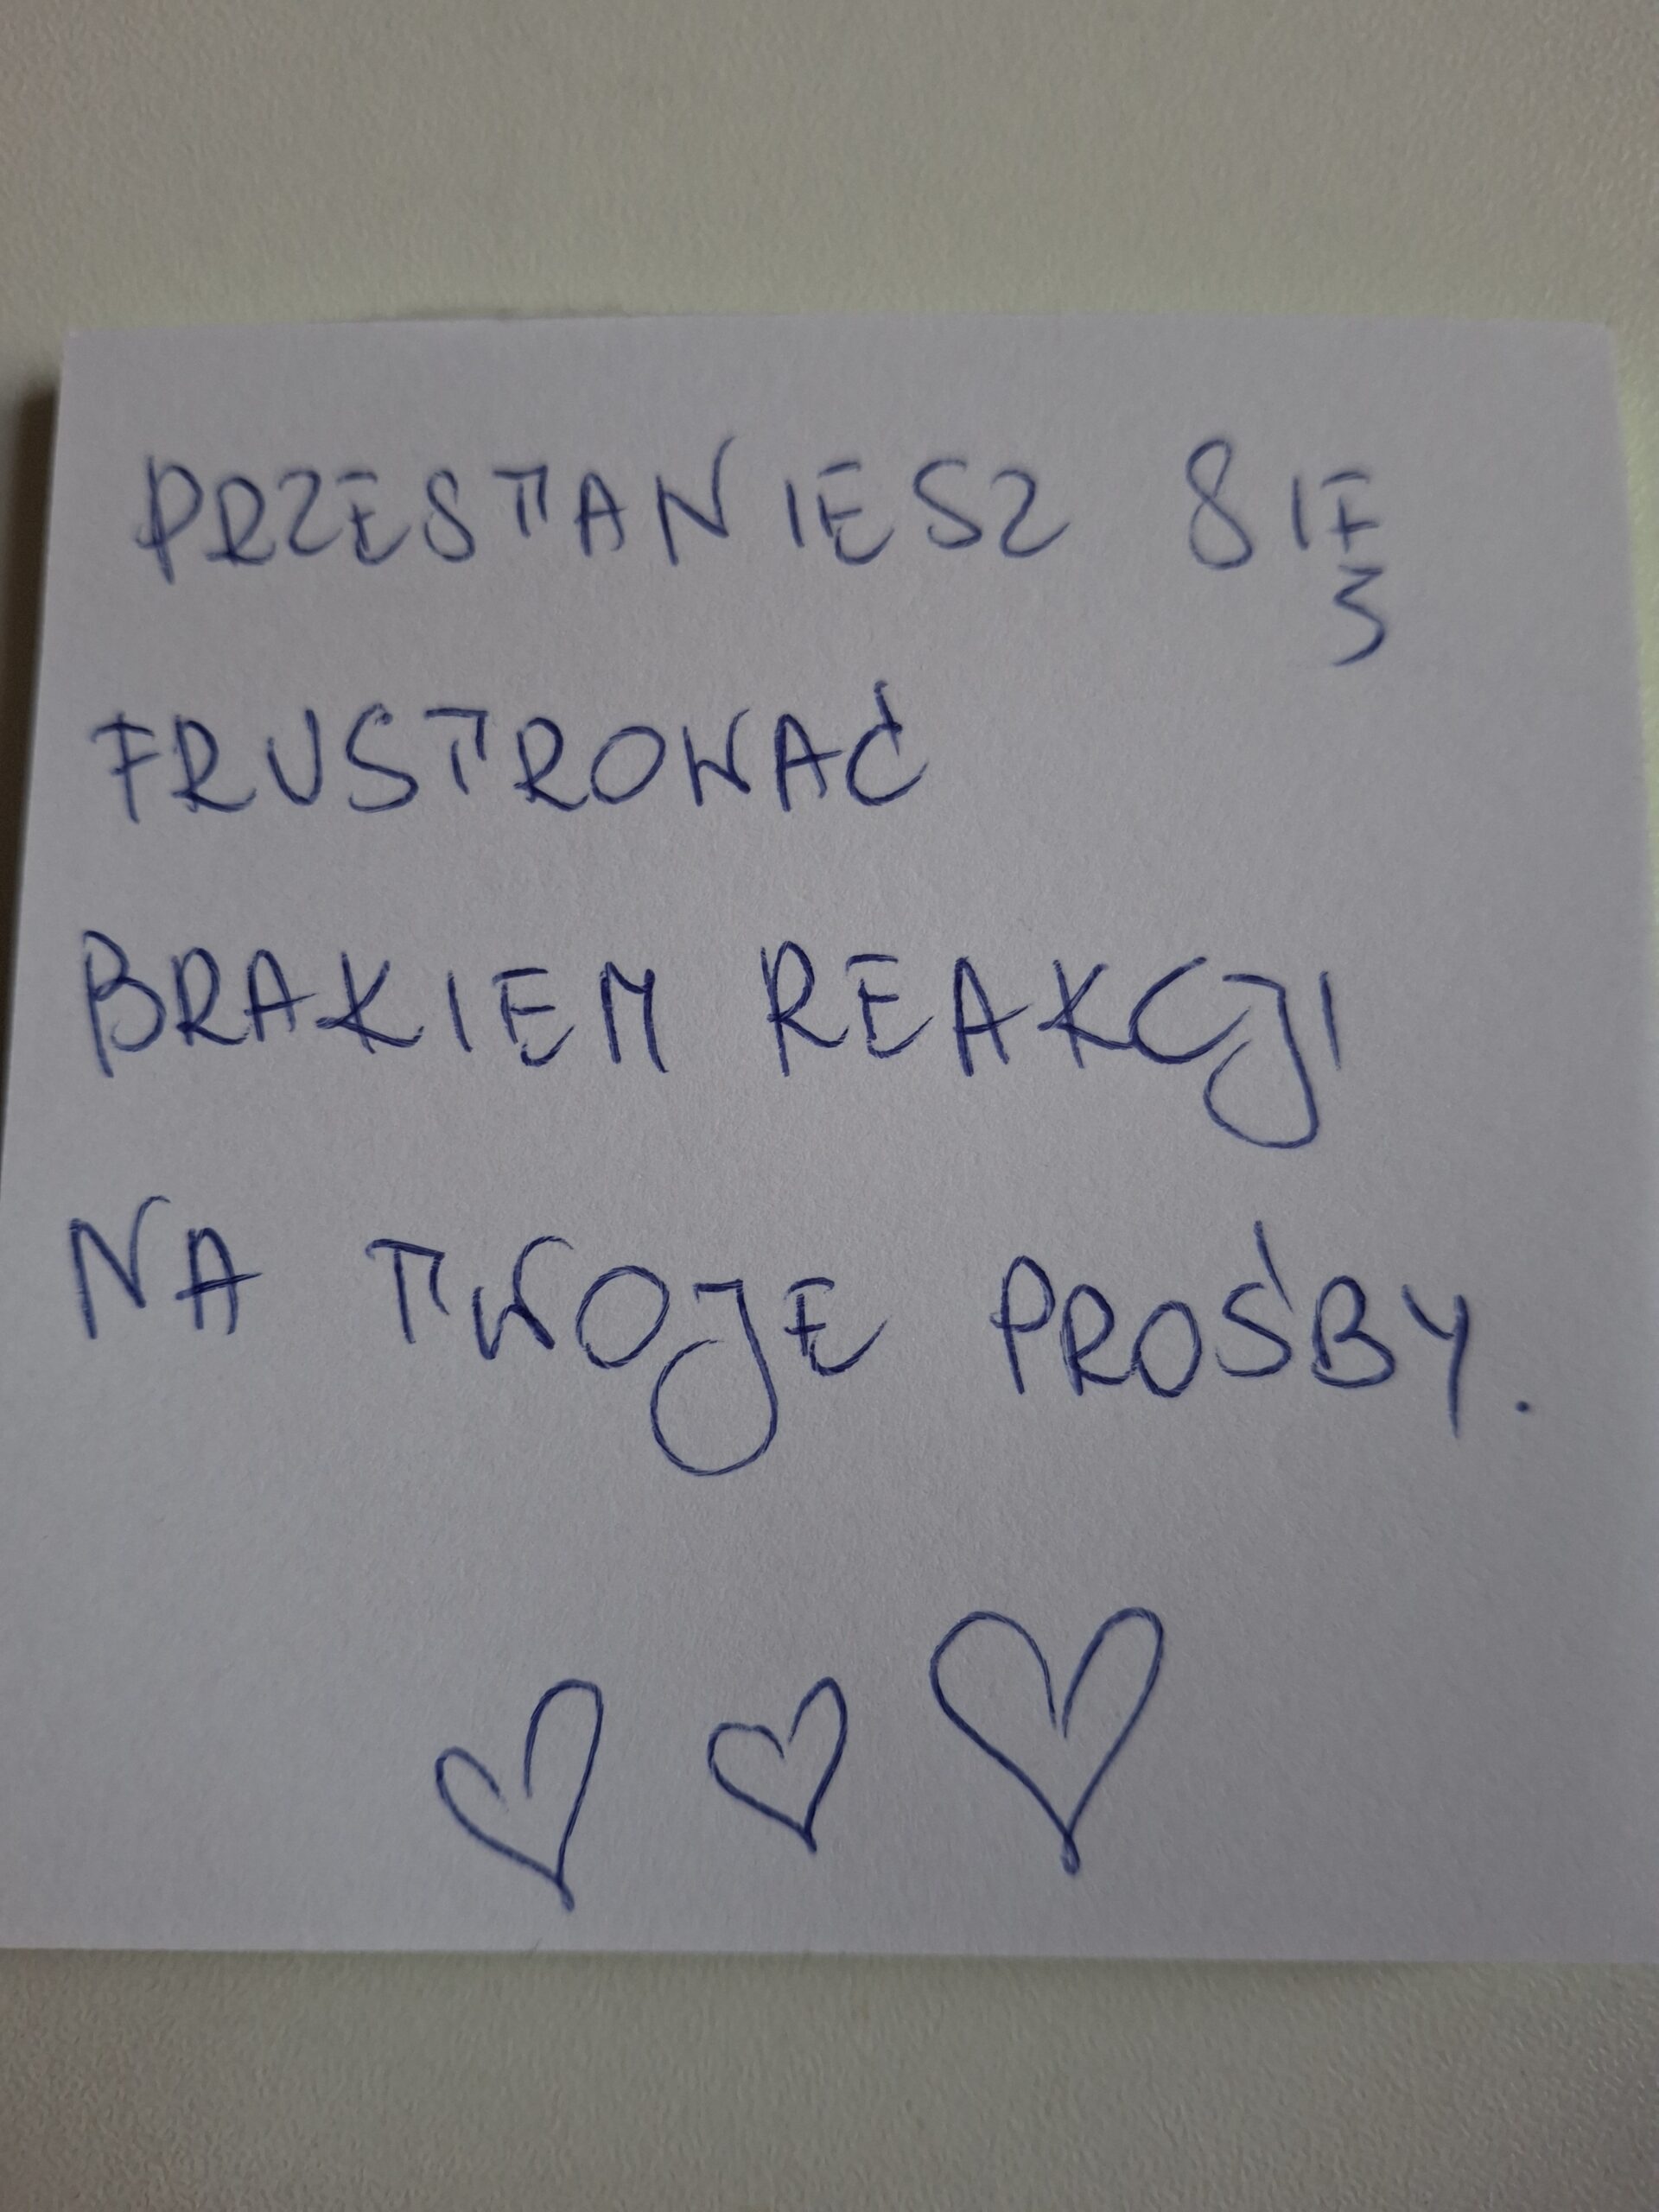 PRZESTANIESZ SIĘ
FRUSTROWAĆ
BRAKIEM REAKCJI
NA TWOJE PROŚBY.